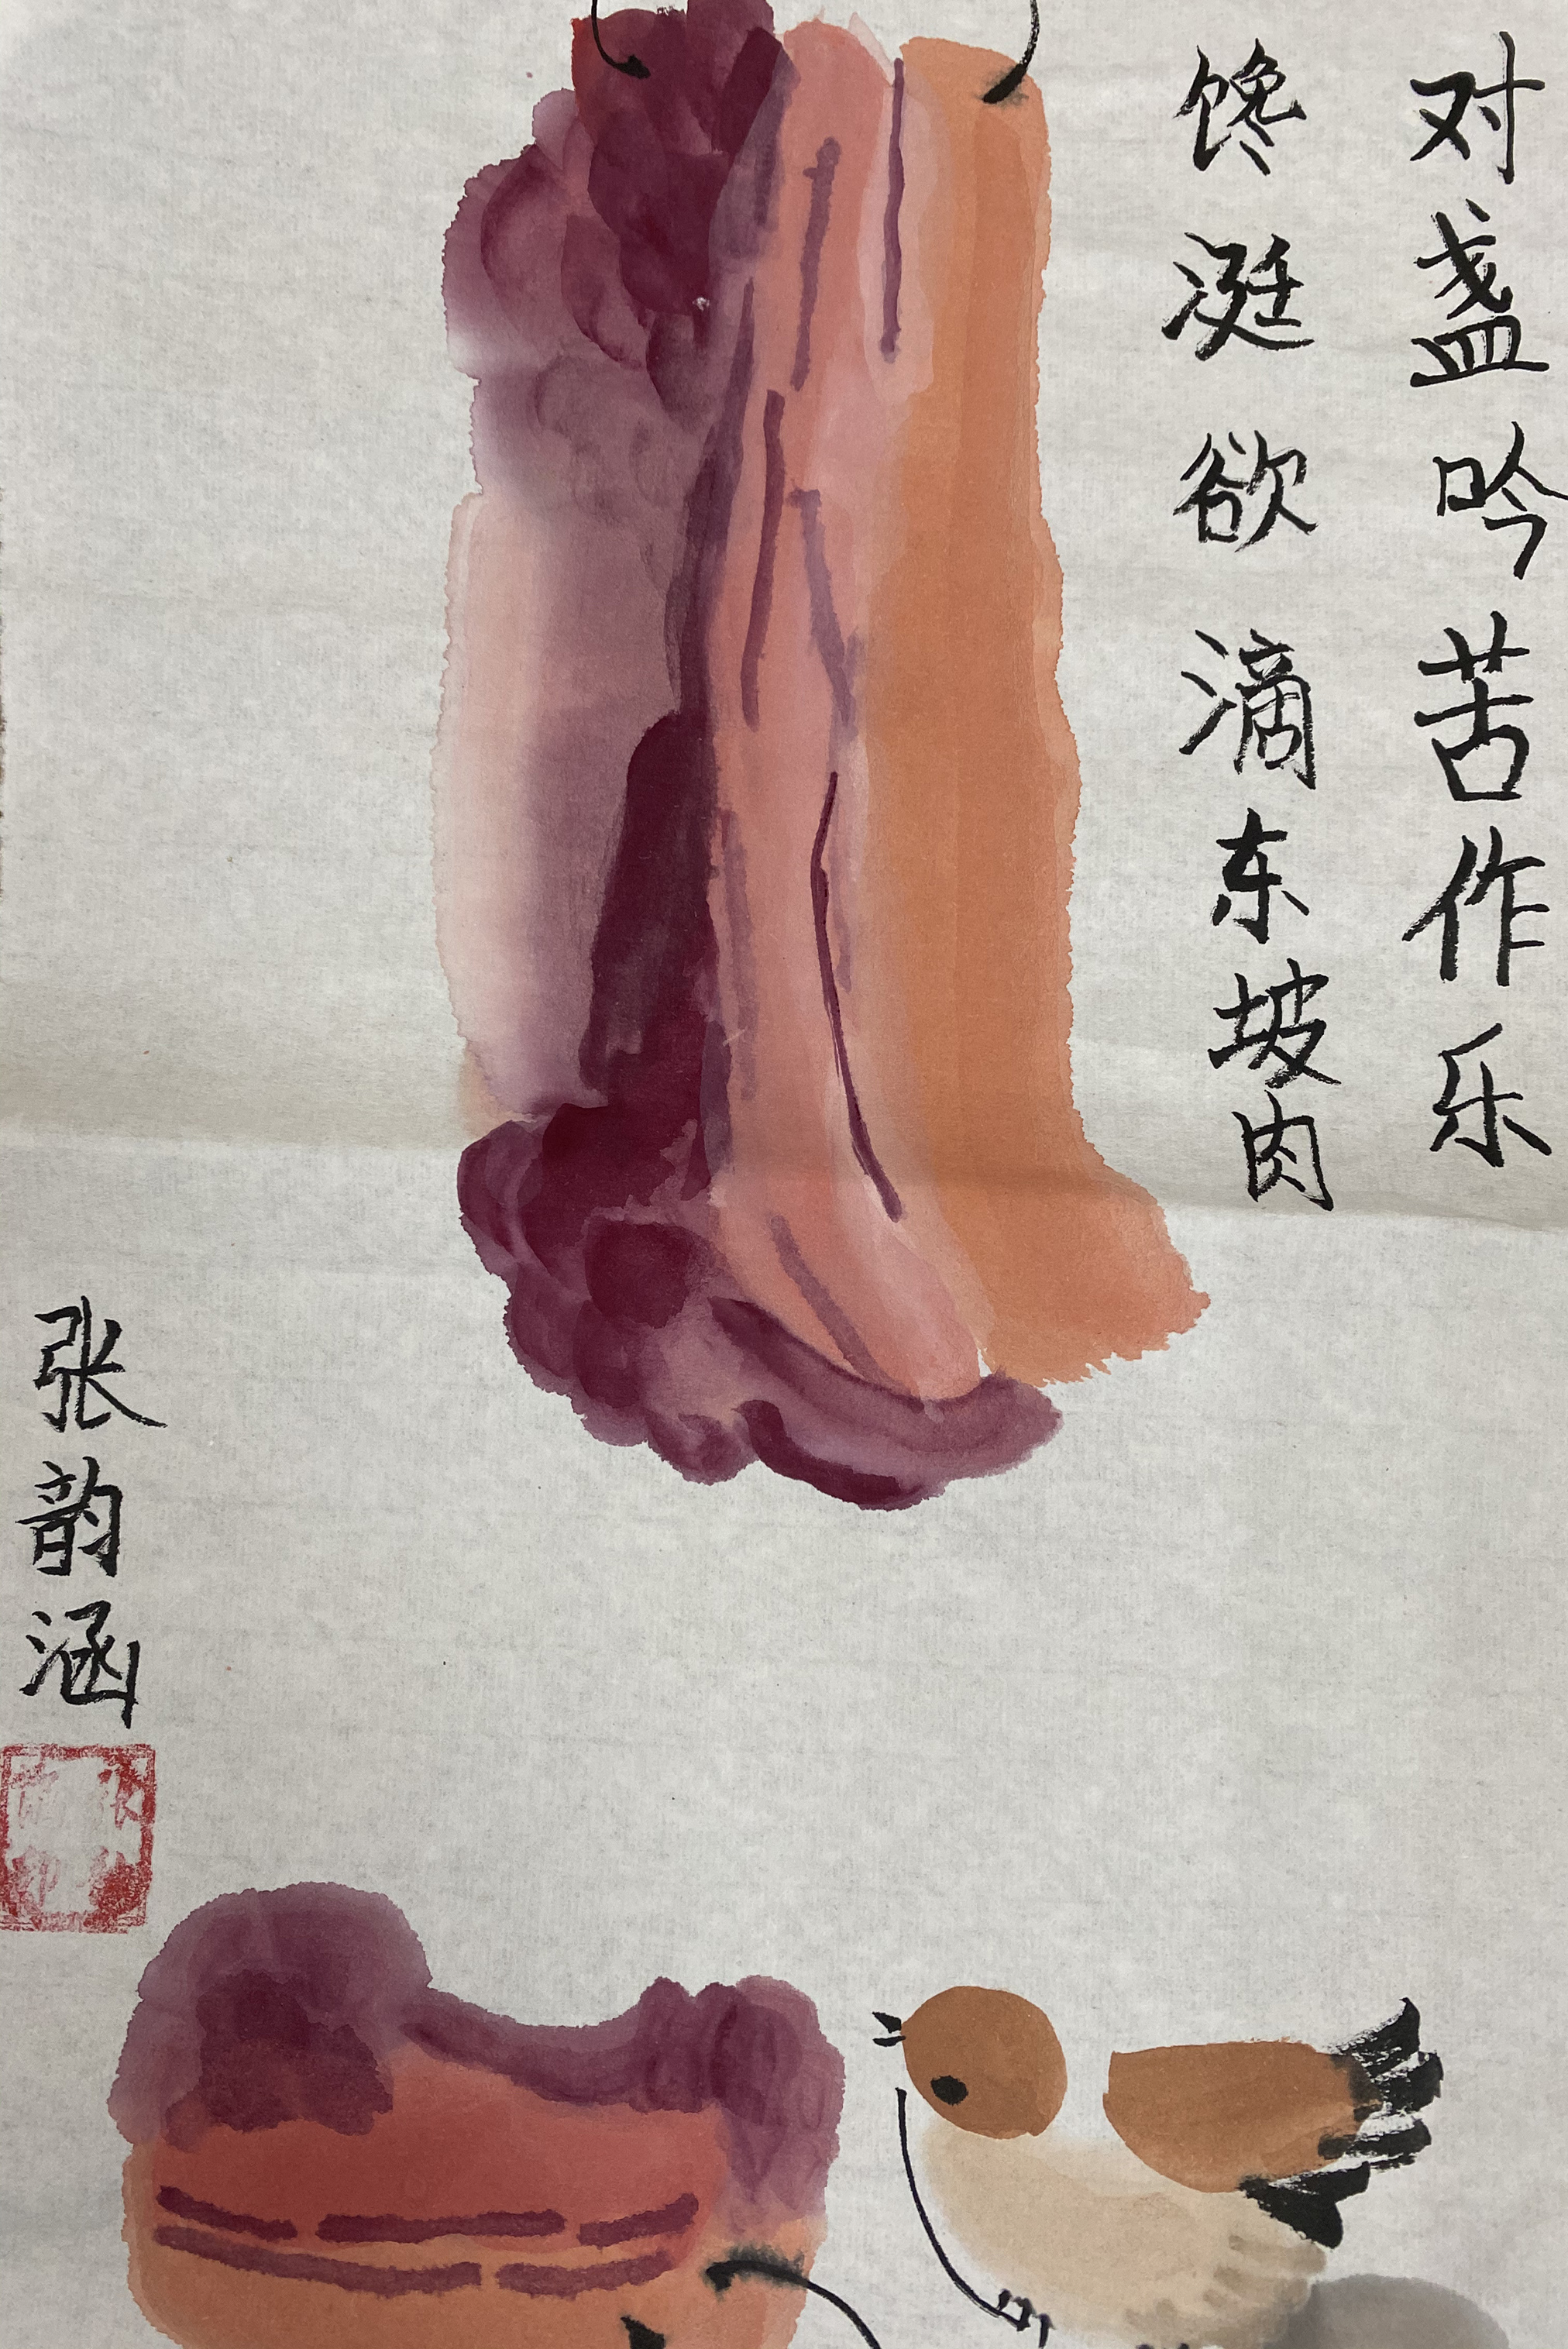 对盏吟苦作乐
馋涎欲滴东坡肉
张韵涵